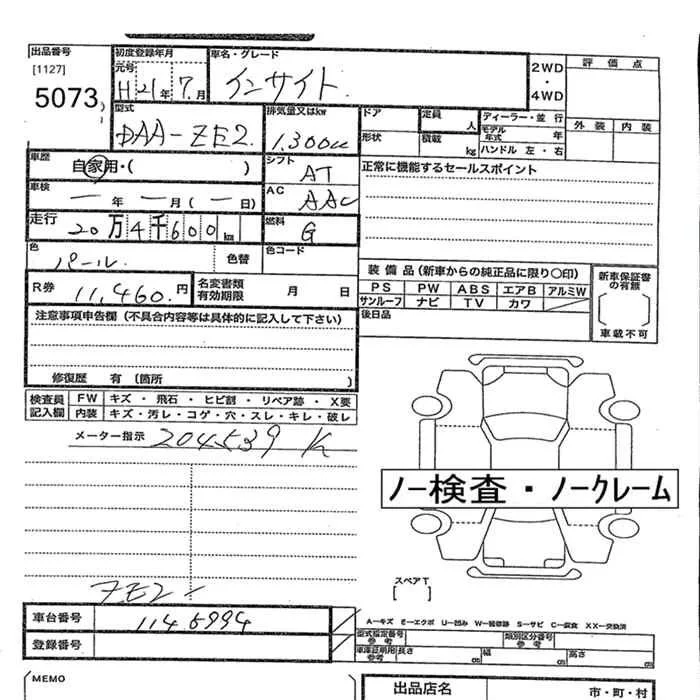 出品番号
[1127]
5073
初度登録年月
元号
H21年7月
車名・グレード
インサイト
2WD
・
4WD
評価点
外装 内装
型式
DAA-ZE2
排気量又はkw
1,300cc
ドア
定員
人
形状
積載
kg
ディーラー・並行
モデル年式 年
ハンドル 左・右
車歴
自家用・( )
シフト
AT
車検
一年一月(一日)
AC
AAC
正常に機能するセールスポイント
走行
20万4千600km
燃料
G
色
パール
色替
色コード
R券
11,460円
名変書類
有効期限
月 日
装備品(新車からの純正品に限り○印)
PS PW ABS エアB アルミW
サンルーフ ナビ TV カワ
後日品
新車保証書
の有無
[ ]
車載不可
注意事項申告欄(不具合内容等は具体的に記入して下さい)
修復歴 有(箇所 )
検査員
記入欄
FW キズ・飛石・ヒビ割・リペア跡・X要
内装 キズ・汚レ・コゲ・穴・スレ・キレ・破レ
メーター指示 204539 K
ノー検査・ノークレーム
スペアT
[ ]
ZE2-
車台番号
1145994
登録番号
A-キズ E-エクボ U-凹み W-補修跡 S-サビ C-腐食 XX-交換済
型式指定番号
参考
類別区分番号
参考
車庫証明用
参考
長さ cm 幅 cm 高さ cm
MEMO
出品店名
市・町・村